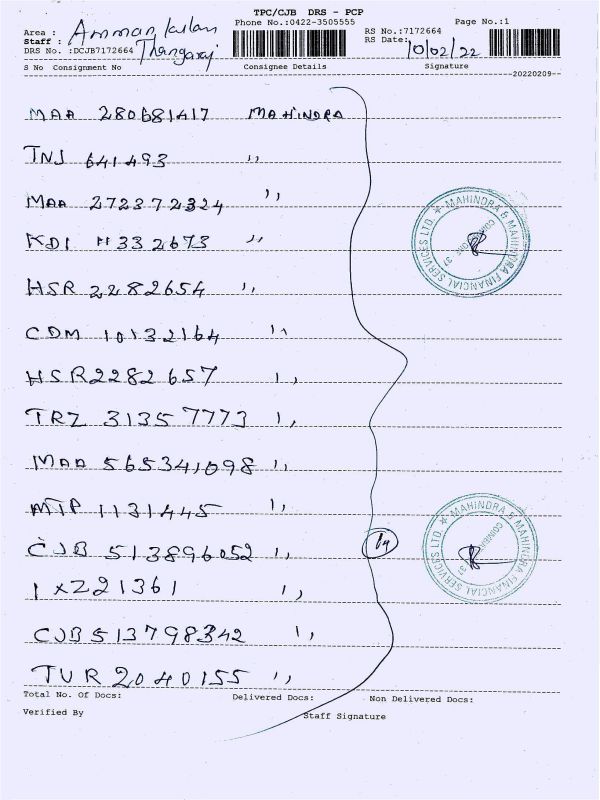 TPC/CJB DRS - PCP
Phone No.:0422-3505555 Page No.:1
Area : Amman kulam
Staff : Thangaraj
DRS No. :DCJB7172664
RS No.:7172664
RS Date: 10/02/22
S No Consignment No Consignee Details Signature
20220209
MAA 280681417 MAHINDRA
TNJ 641493 ,,
MAA 272372324 ,,
KDI 11332673 ,,
HSR 2282654 ,,
CDM 10132164 ,,
HSR2282657 ,,
TRZ 31357773 ,,
MAA 565341098 ,,
MTP 1131445 ,,
CJB 513896052 ,,
IXZ21361 ,,
CJB513798342 ,,
TUR 2040155 ,,
MAHINDRA & MAHINDRA FINANCIAL SERVICES LTD.
MAHINDRA & MAHINDRA FINANCIAL SERVICES LTD.
Total No. Of Docs: Delivered Docs: Non Delivered Docs:
Verified By Staff Signature